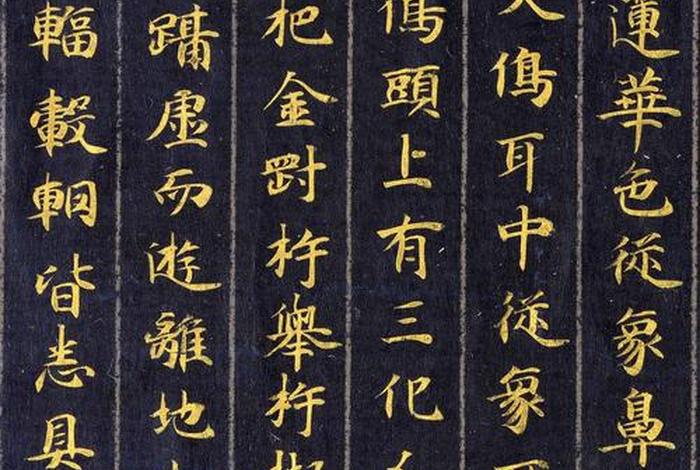 蓮華色従象鼻
像耳中従象
像頭上有三化
把金剛杵舉杵擬
躡虛而遊離地
輻轂輞皆悉具